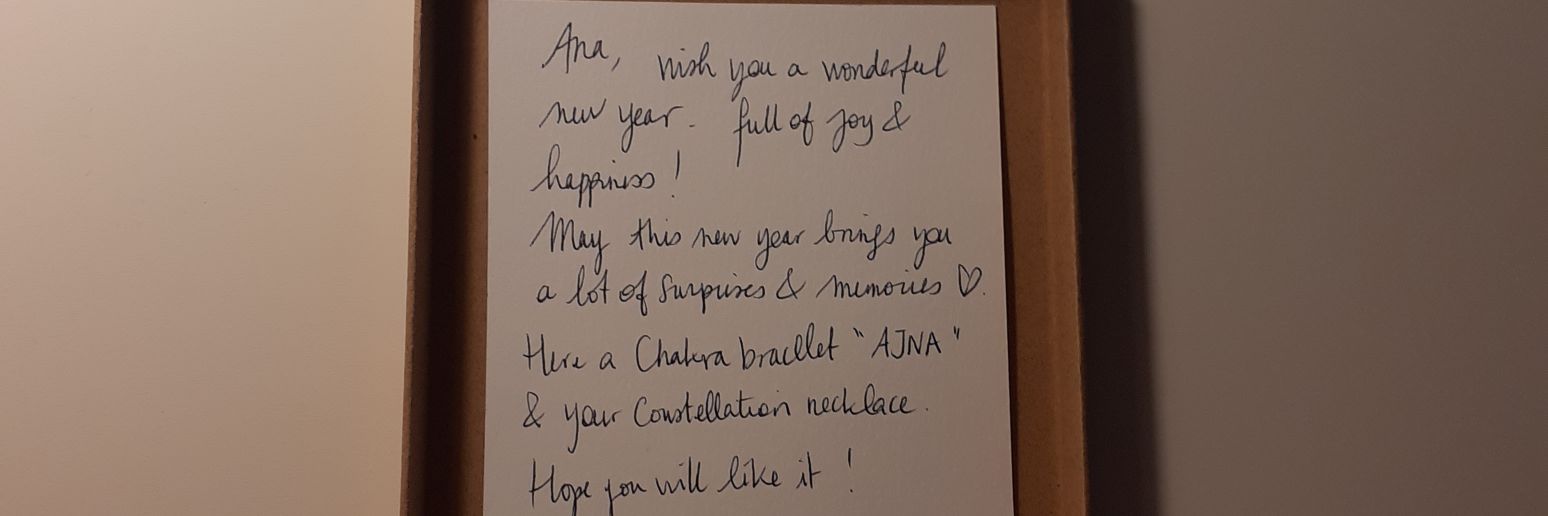 Ana, wish you a wonderful
new year. full of joy &
happiness !
May this new year brings you
a lot of surprises & memories ♡.
Here a Chakra bracelet "AJNA"
& your Constellation necklace.
Hope you will like it !